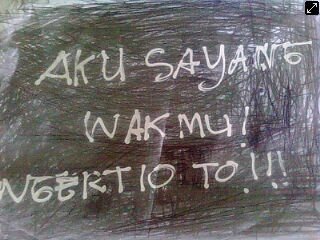 AKU SAYANG
WAKMU!
NGERTIO TO!!!